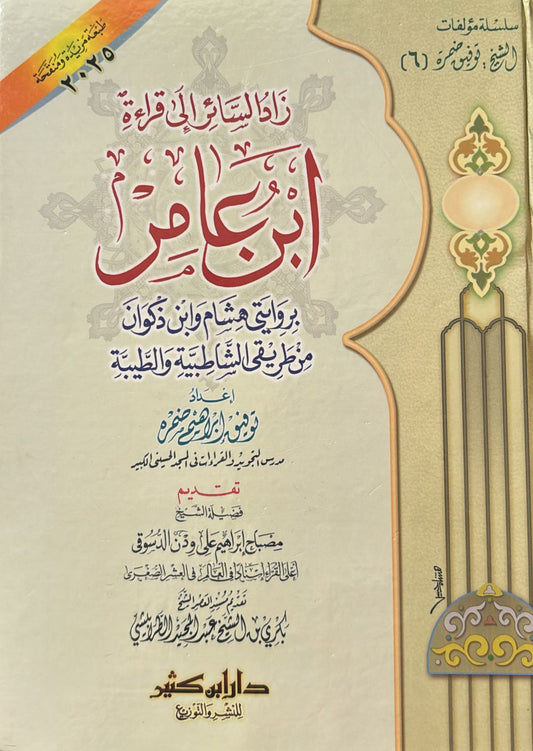 سلسلة مؤلفات
الشيخ: توفيق ضمرة (٦)
طبعة مزيدة ومنقحة
٢٠٢٥
زَادُ السَّائِرِ إِلَى قِرَاءَةِ
ابْنِ عَامِرٍ
بِرِوَايَتَيْ هِشَامٍ وَابْنِ ذَكْوَانَ
مِنْ طَرِيقَيِ الشَّاطِبِيَّةِ وَالطَّيِّبَةِ
إعداد
توفيق إبراهيم ضمرة
مدرس التجويد والقراءات في المسجد الحسيني الكبير
تقديم
فضيلة الشيخ
مصباح إبراهيم علي ودن الدسوقي
أعلى القراء إسنادا في العالم في العشر الصغرى
تقديم مسند العصر الشيخ
بكري بن الشيخ عبد المجيد الطرابيشي
دار ابن كثير
للنشر والتوزيع